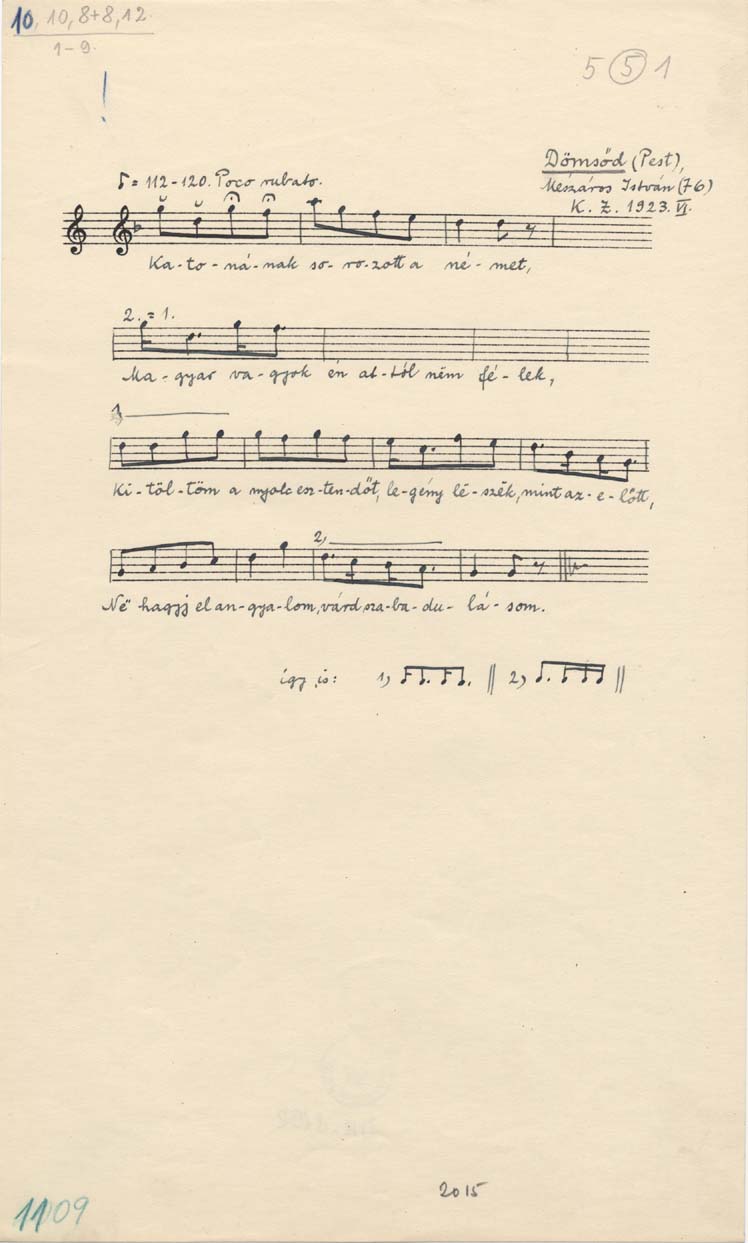 10, 10, 8+8, 12.
1-9.
!
5 5 1
Dömsöd (Pest),
Mészáros István (76)
K. Z. 1923. VI.
♪= 112-120. Poco rubato.
Ka-to-ná-nak so-ro-zott a né-met,
2. = 1.
Ma-gyar va-gyok én at-tól ném fé-lek,
1,
Ki-töl-töm a nyolc esz-ten-dőt, le-gény lé-szëk, mint az-e-lőtt,
2,
Në hagyj el an-gya-lom, várd sza-ba-du-lá-som.
így is: 1, 2,
2015
1109